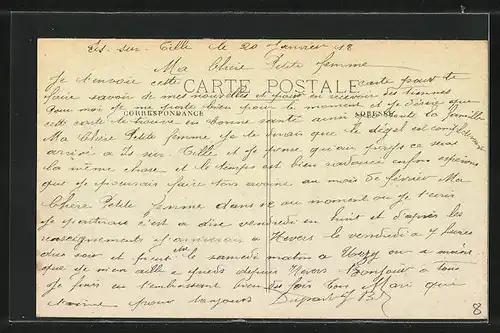 Is-sur-Tille le 20 Janvier 18
Ma Chère Petite femme
CARTE POSTALE
Je t'envoie cette carte pour te
faire savoir de mes nouvelles et pour en recevoir des tiennes
Pour moi je me porte bien pour le moment et je désire que
CORRESPONDANCE ADRESSE
cette carte te trouve en bonne santé ainsi que toute la famille
Ma Chère Petite femme je te dirais que le dégel est
arrivé à Is sur Tille et je pense qu'au pays ce sera
la même chose et le temps est bien radouci enfin espérons
que je pourrais faire au mois de février Ma
Chère Petite femme dans le au moment où je t'écris
je partirais c'est à dire vendredi en huit et d'après les
renseignements j'arriverais à Nevers le vendredi à 7 heures
du soir et puis le samedi matin à ou à moins
que je m'en aille à pieds depuis Nevers Bonjour à tous
Je finis en t'embrassant bien des fois Ton Mari qui
t'aime pour toujours Dupart
8